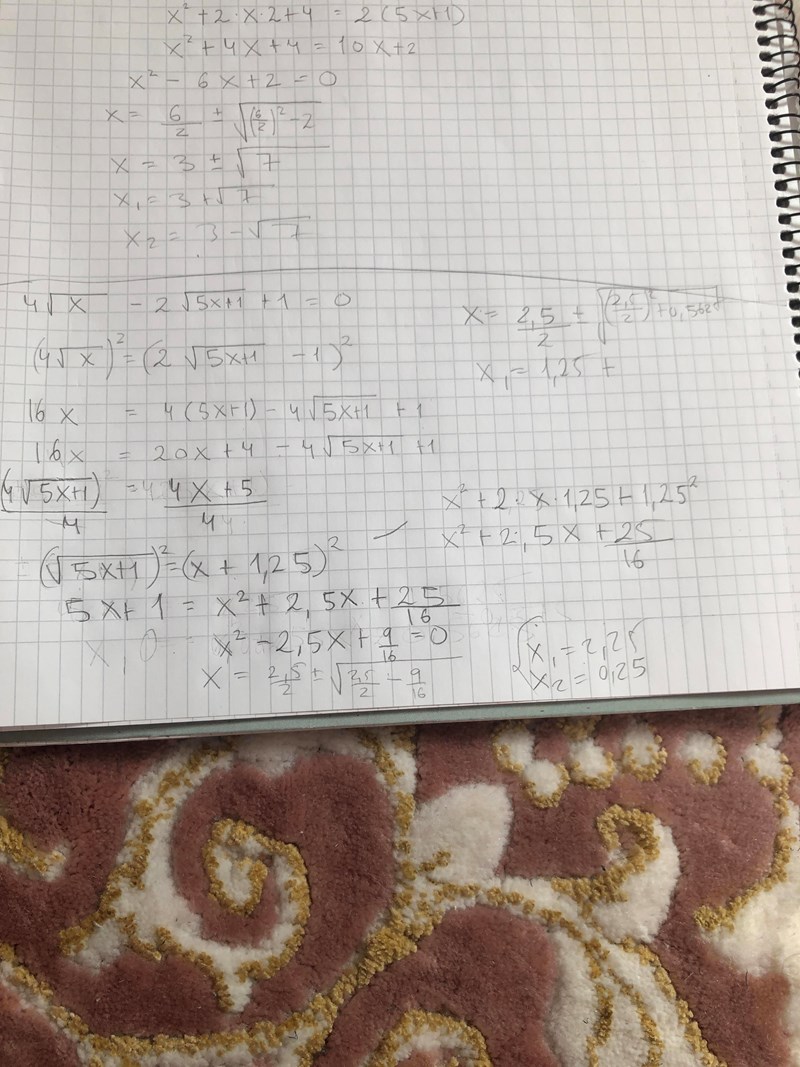 x² + 2·x·2+4 = 2(5x+1)
x² + 4x+4 = 10x+2
x² - 6x+2 = 0
x = 6/2 ± √((6/2)² - 2)
x = 3 ± √7
x₁ = 3+√7
x₂ = 3-√7
4√x - 2√5x+1 + 1 = 0
(4√x)² = (2√5x+1 - 1)²
16x = 4(5x+1) - 4√5x+1 + 1
16x = 20x+4 - 4√5x+1 + 1
(4√5x+1)/4 = (4x+5)/4
(√5x+1)² = (x + 1,25)²
5x+1 = x² + 2,5x + 25/16
x² - 2,5x + 9/16 = 0
x = 2,5/2 ± √(2,5/2 - 9/16)
x = 2,5/2 ± √((2,5/2)² + 0,5625)
x₁ = 1,25 +
x² + 2·x·1,25 + 1,25²
x² + 2,5x + 25/16
x₁ = 2,25
x₂ = 0,25